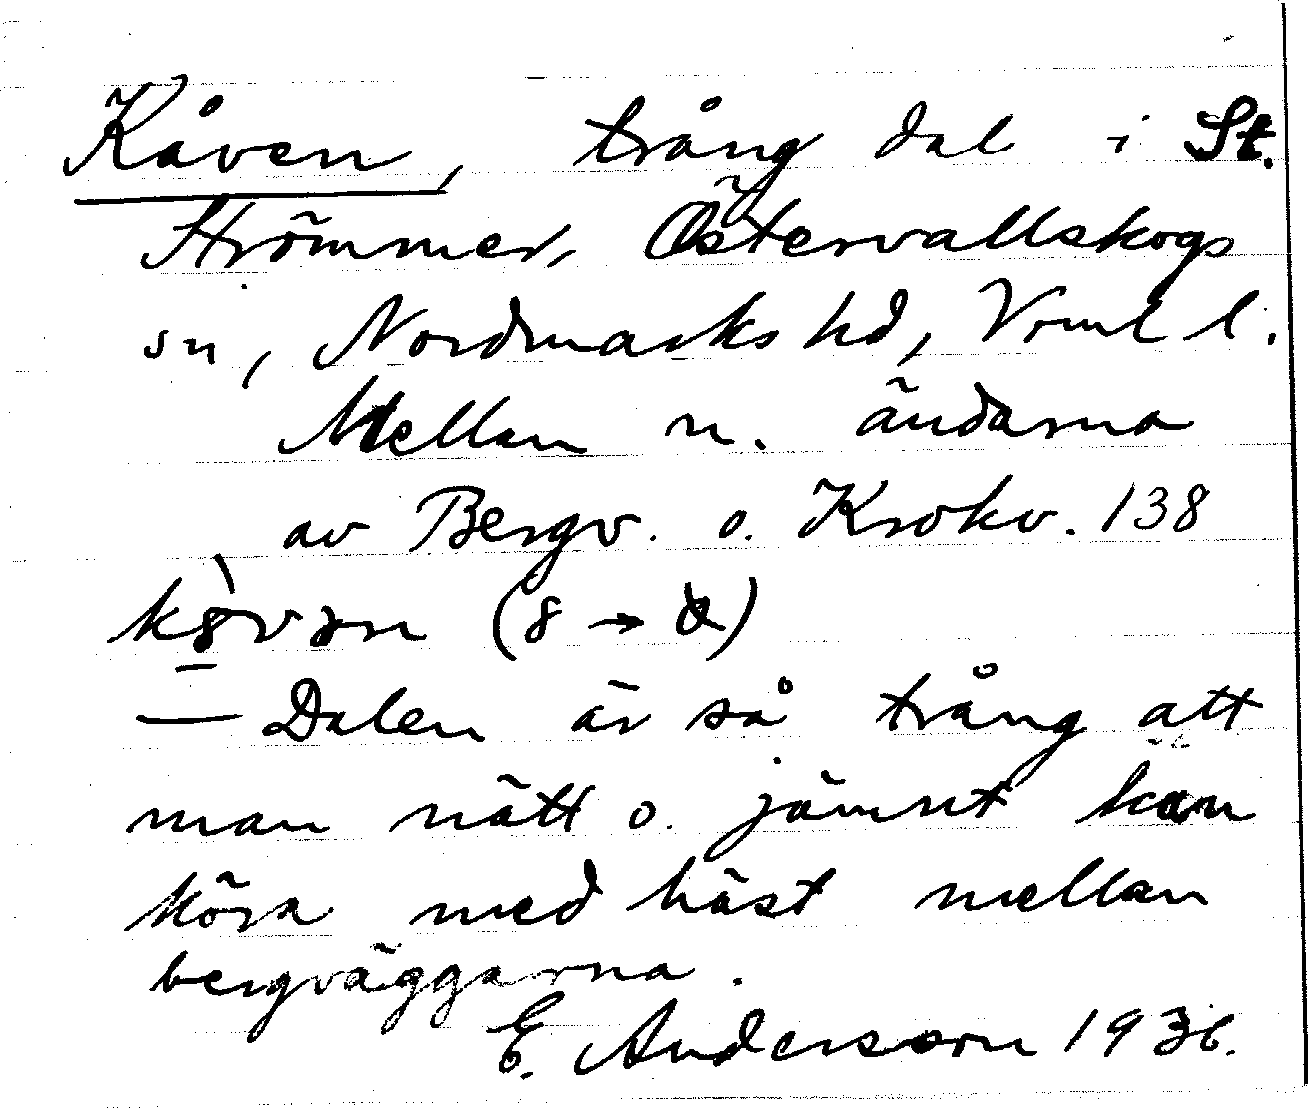 Kåven, trång dal i St.
Strömmer, Östervallskogs
sn, Nordmarks hd, Vrml l.
Mellan n. ändarna
av Bergv. o. Krokv. 138
(8 → )
— Dalen är så trång att
man nätt o. jämnt kan
köra med häst mellan
bergväggarna.
E. Andersson 1936.